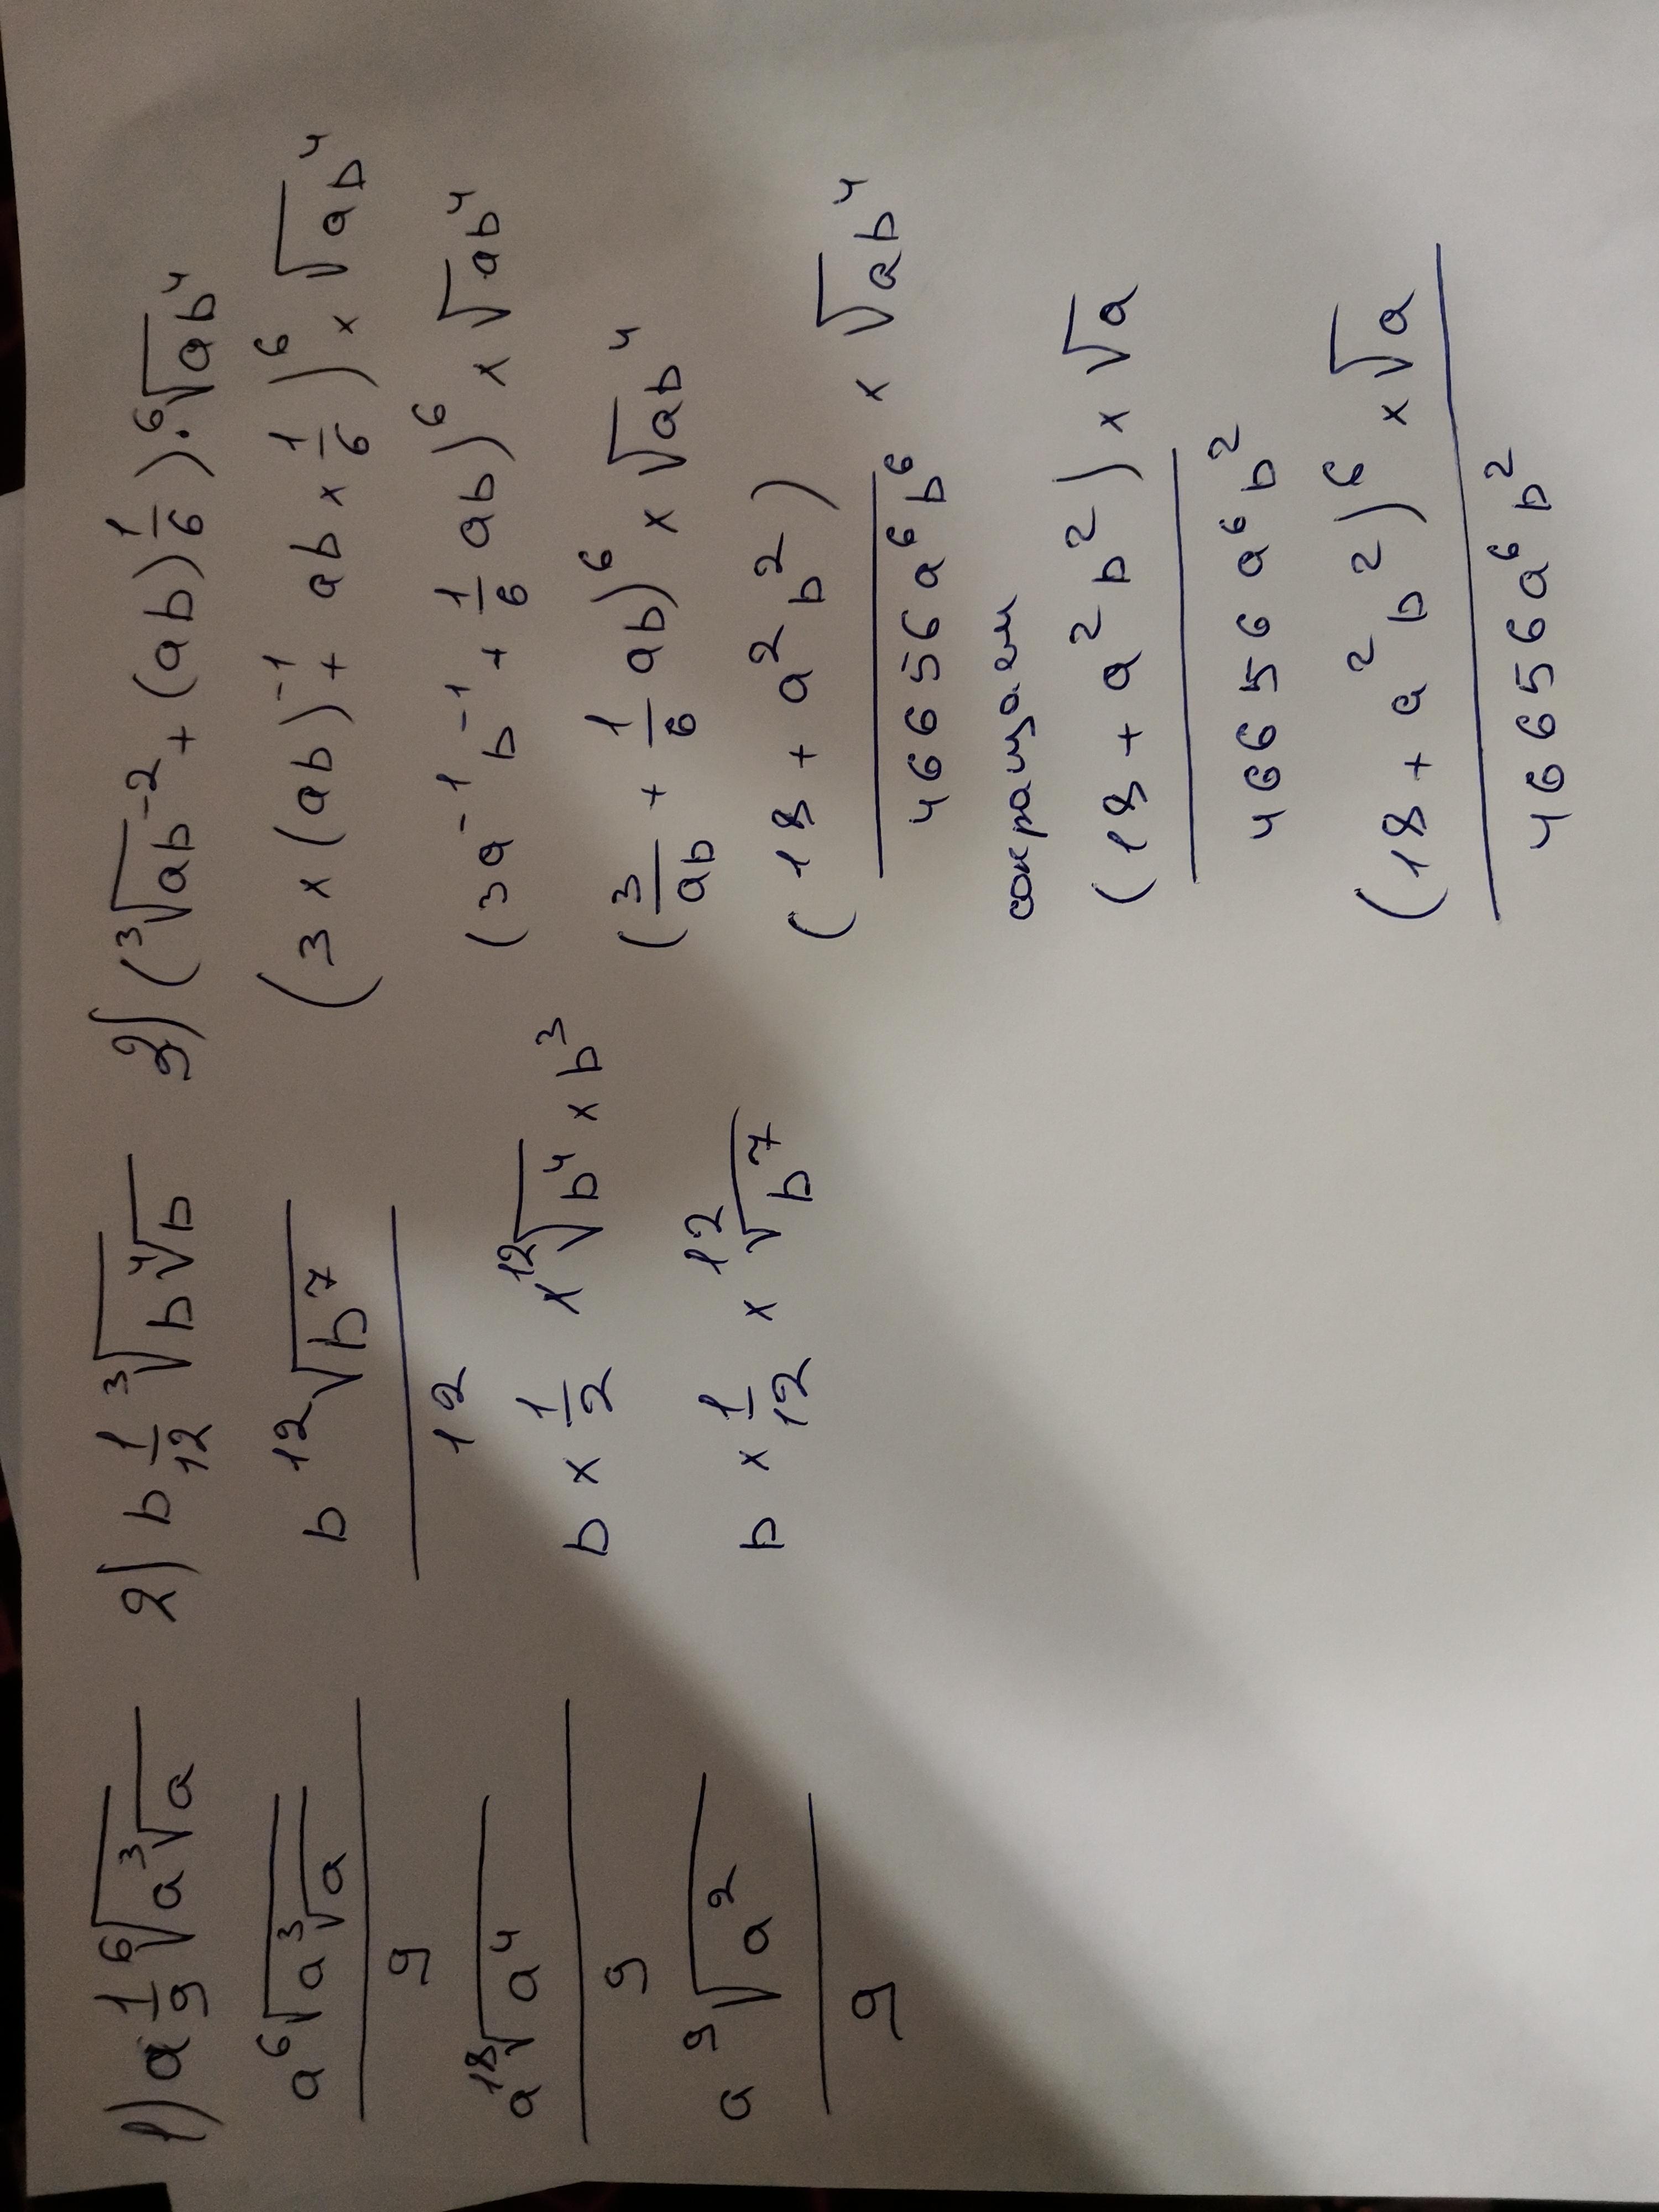 1) a 1/9 ⁶√(a ³√a)
a ⁶√(a ³√a)
9
a ¹⁸√a⁴
9
a ⁹√a²
9
2) b 1/12 ³√(b ⁴√b)
b ¹²√b⁷
12
b × 1/2 × ¹²√b⁴ × b³
b × 1/12 × ¹²√b⁷
3) (³√ab⁻² + (ab) 1/6) · ⁶√ab⁴
(3 × (ab)⁻¹ + ab × 1/6)⁶ × √ab⁴
(3a⁻¹ b⁻¹ + 1/6 ab)⁶ × √ab⁴
(3/ab + 1/6 ab)⁶ × √ab⁴
(18 + a² b²) × √ab⁴
46656 a⁶ b⁶
сокращаем
(18 + a² b²) × √a
46656 a⁶ b²
(18 + a² b²)⁶ × √a
46656 a⁶ b²